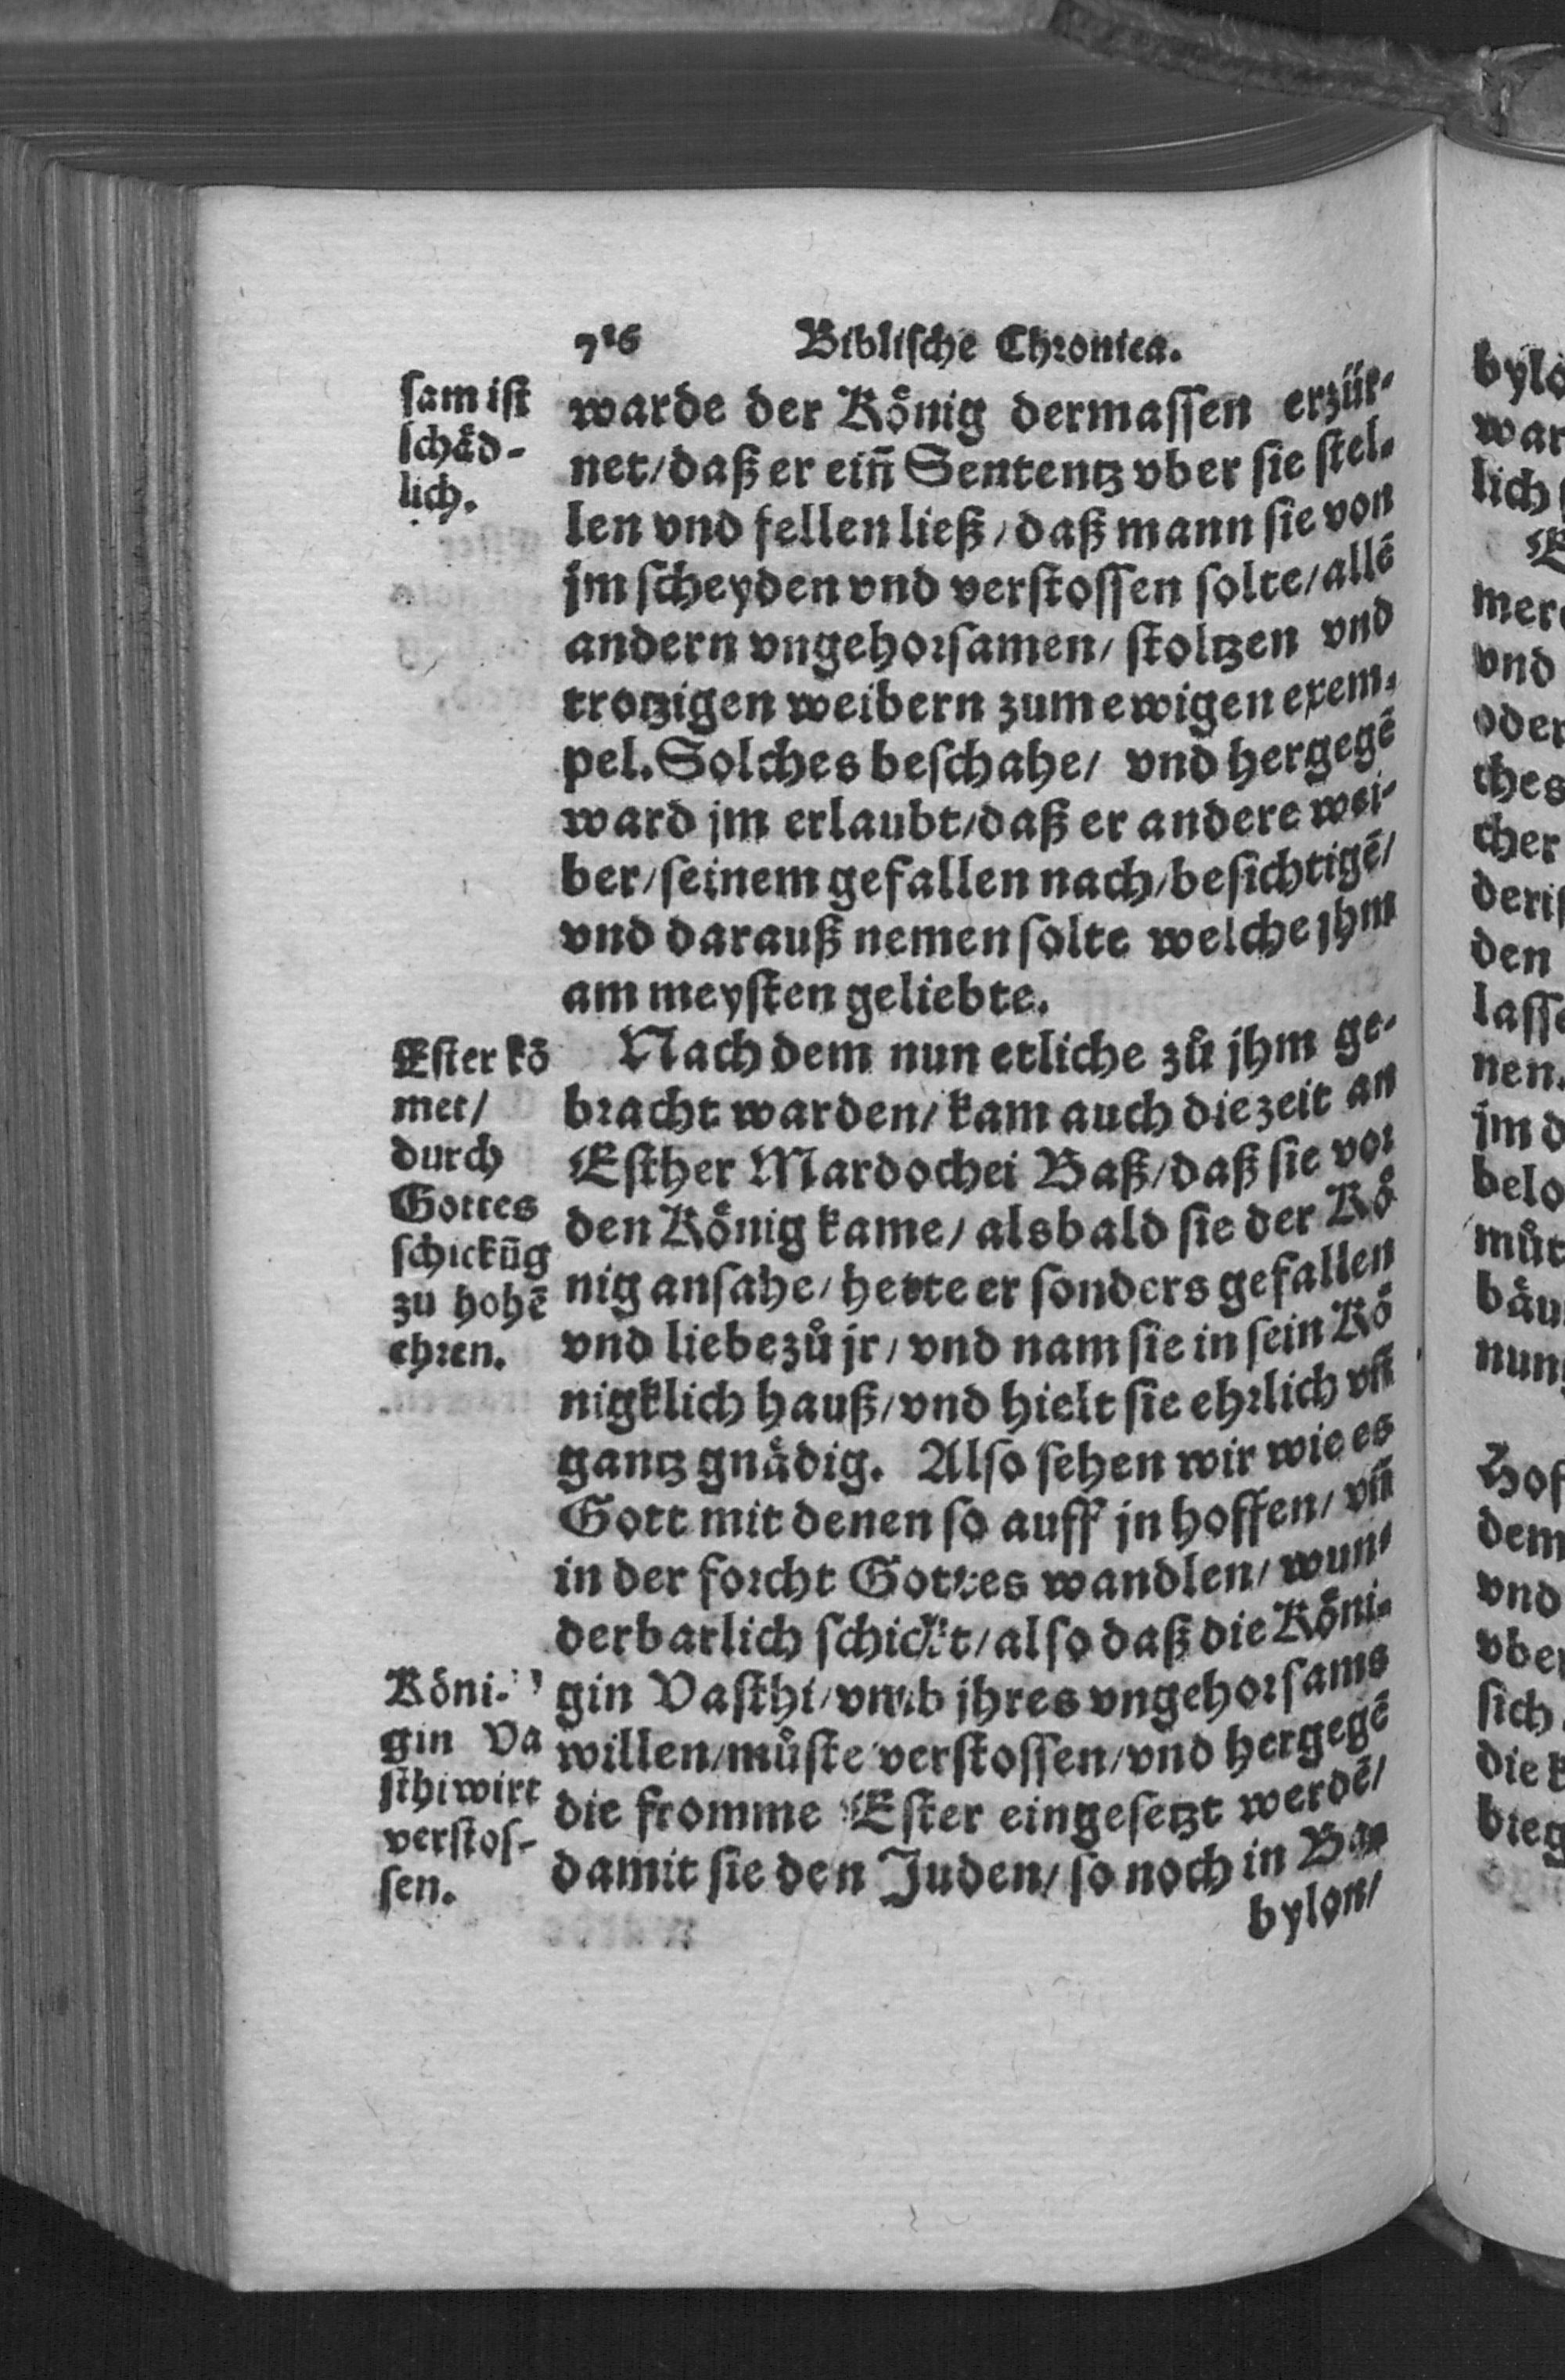 716 Biblische Chronica.
sam ist
schåd-
lich.
warde der Kőnig dermassen erzür-
net/daß er eiñ Sententz vber sie stel-
len vnd fellen ließ/daß mann sie von
jm scheyden vnd verstossen solte/allē
andern vngehorsamen/stoltzen vnd
trotzigen weibern zum ewigen exem-
pel. Solches beschahe/ vnd hergegē
ward jm erlaubt/daß er andere wei-
ber/seinem gefallen nach/besichtigē/
vnd darauß nemen solte welche jhm
am meysten geliebte.
Ester kō
met/
durch
Gottes
schickūg
zu hohē
ehren.
Nach dem nun etliche zů jhm ge-
bracht warden/kam auch die zeit an
Esther Mardochei Baß/daß sie vor
den Kőnig kame/alsbald sie der Kő
nig ansahe/hette er sonders gefallen
vnd liebe zů jr/vnd nam sie in sein Kő
nigklich hauß/vnd hielt sie ehrlich vñ
gantz gnådig. Also sehen wir wie es
Gott mit denen so auff jn hoffen/vñ
in der forcht Gottes wandlen/wun-
derbarlich schickt/also daß die Kőni-
gin Vasthi/vmb jhres vngehorsams
willen/můste verstossen/vnd hergegē
die fromme Ester eingesetzt werdē/
damit sie den Juden/so noch in Ba-
Kőni-
gin Va
sthi wirt
verstos-
sen.
bylon/